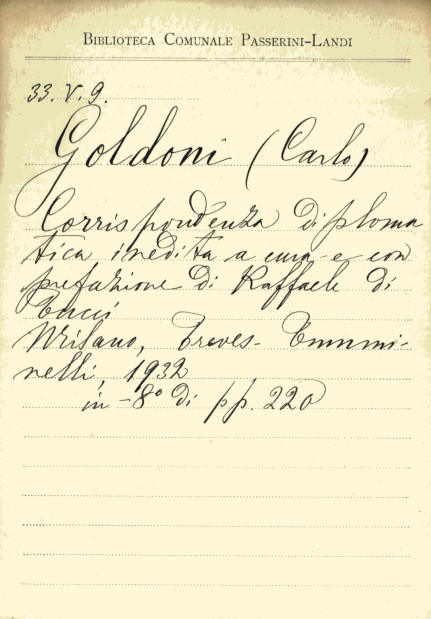 BIBLIOTECA COMUNALE PASSERINI-LANDI
33. V. 9.
Goldoni (Carlo)
Corrispondenza diploma
tica inedita a cura e con
prefazione di Raffaele di
Tucci
Milano, Treves- Tummi-
nelli, 1932
in -8° di pp. 220